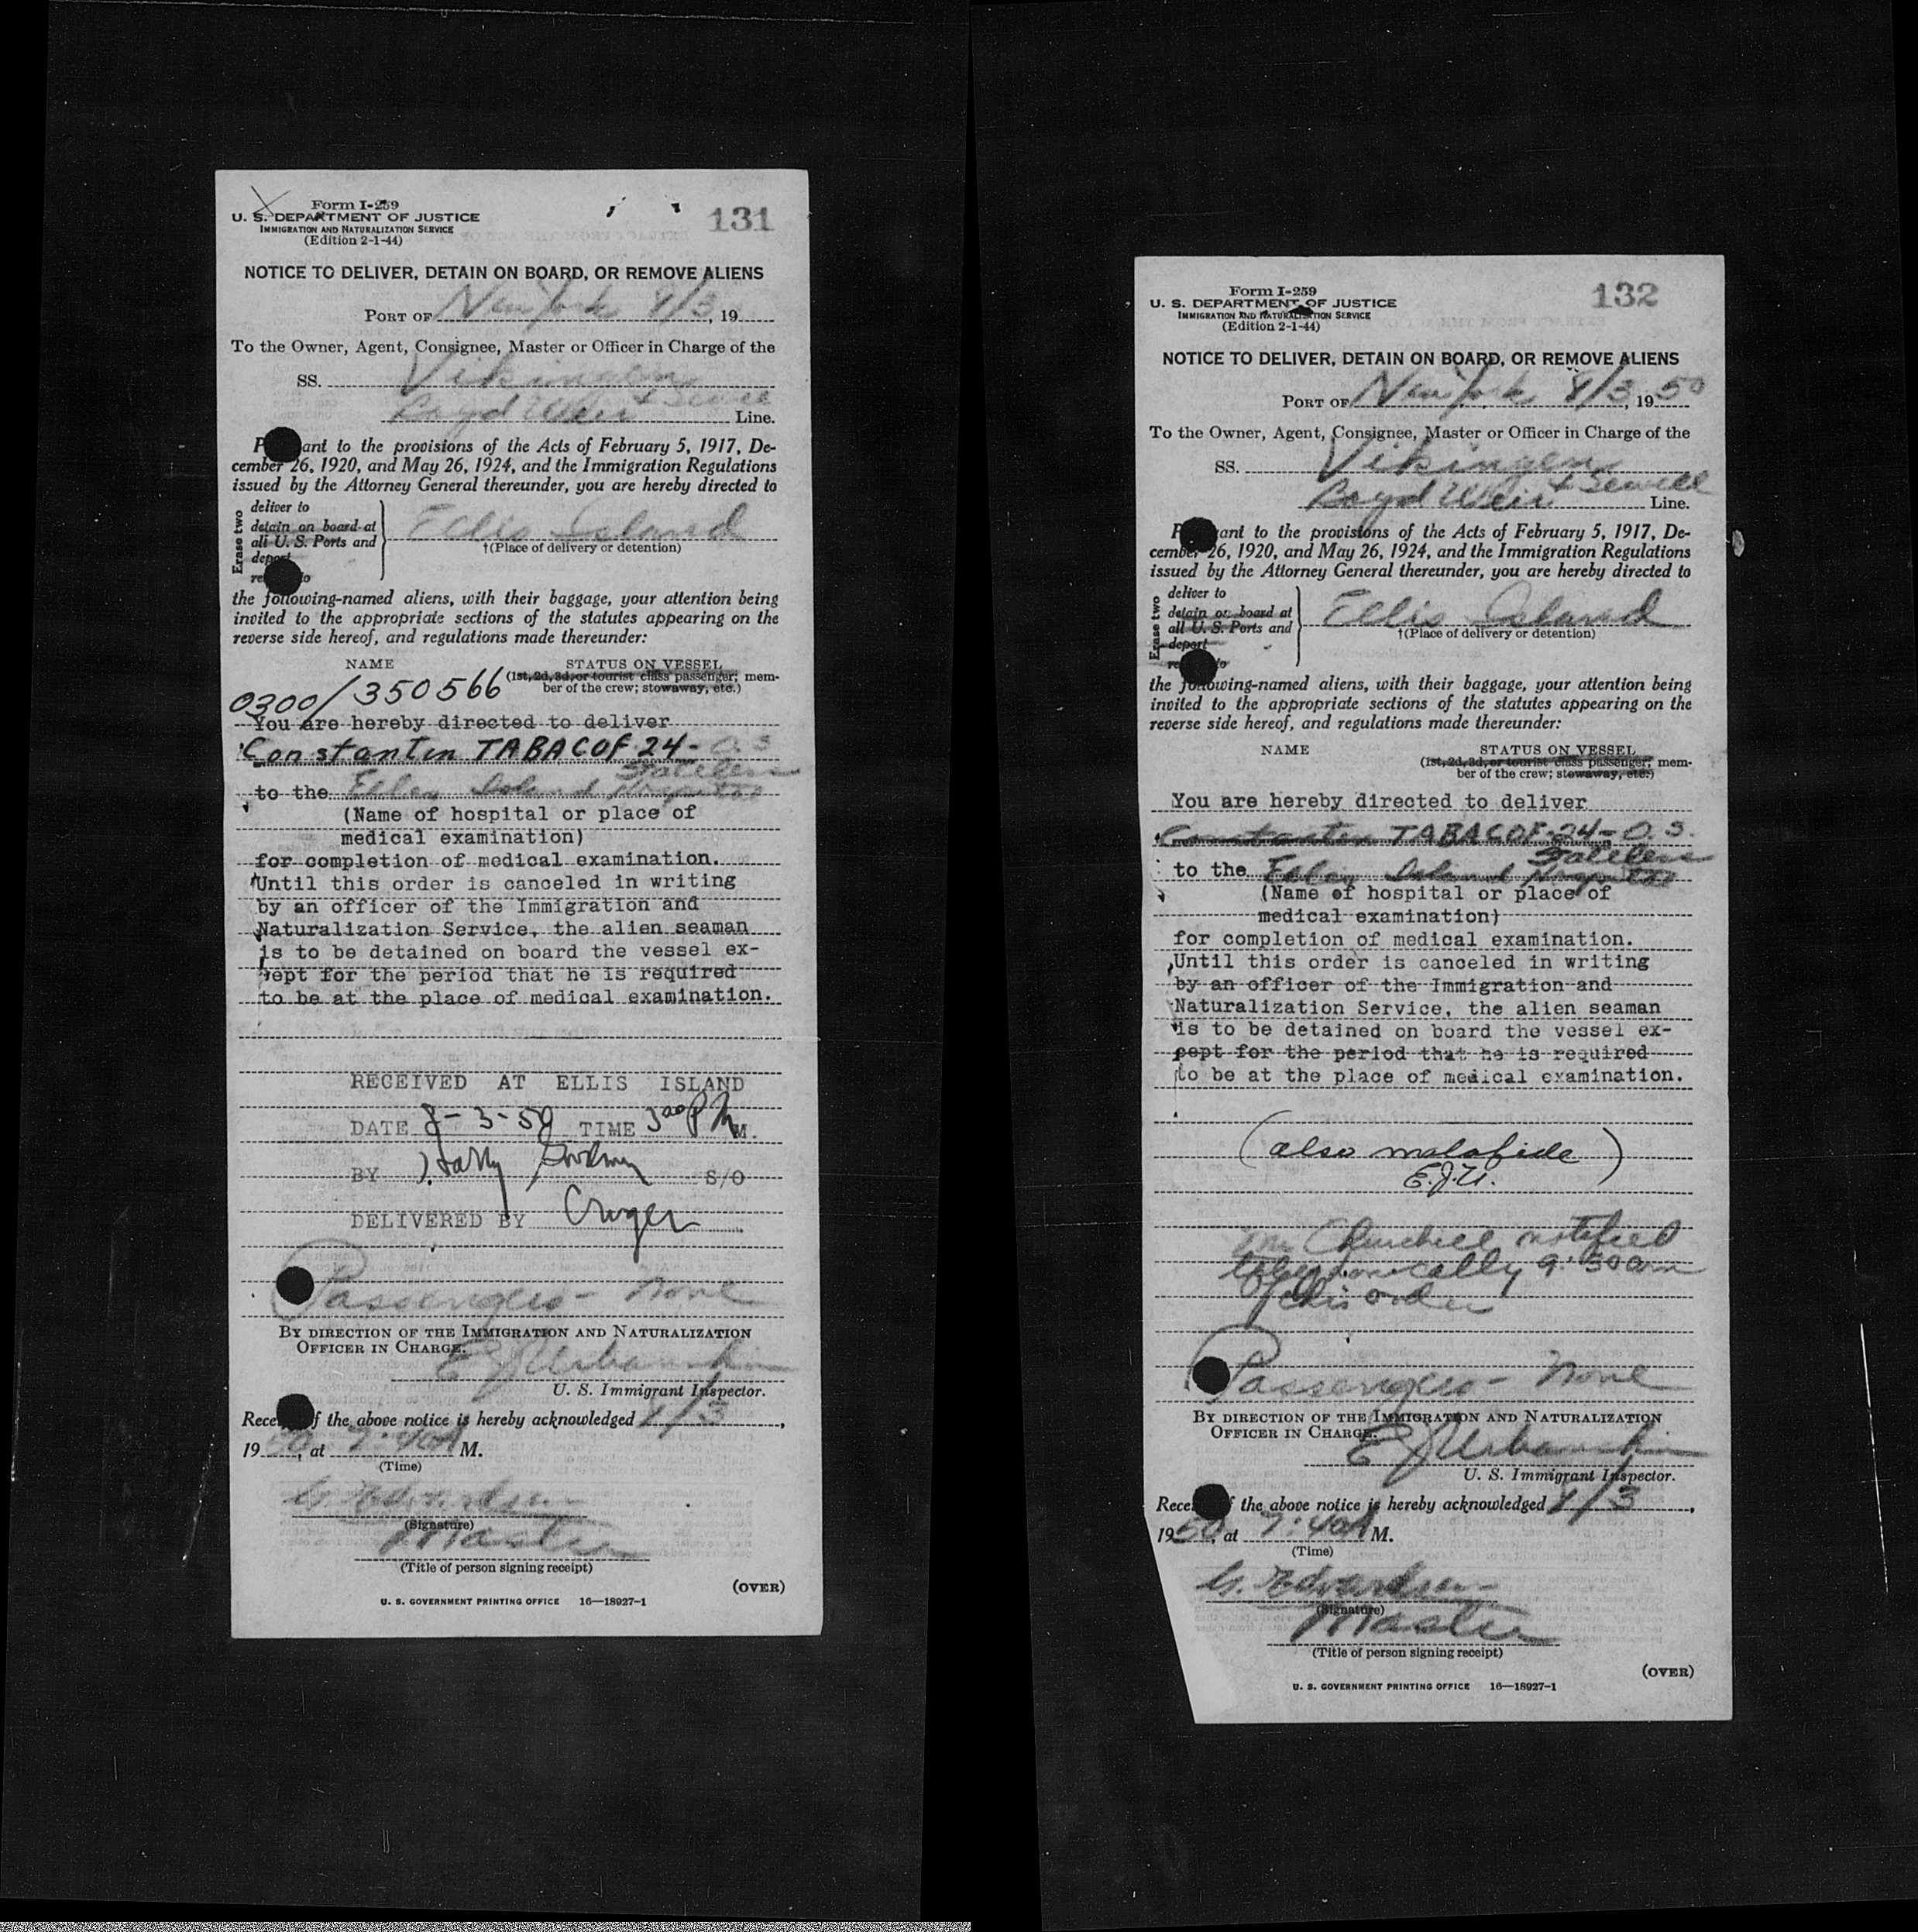 Form I-259
U. S. DEPARTMENT OF JUSTICE
IMMIGRATION AND NATURALIZATION SERVICE
(Edition 2-1-44)
131
NOTICE TO DELIVER, DETAIN ON BOARD, OR REMOVE ALIENS
PORT OF New York 8/3, 19
To the Owner, Agent, Consignee, Master or Officer in Charge of the
SS. Vikingen
Boyd Weir + Sewell Line.
P ant to the provisions of the Acts of February 5, 1917, De-
cember 26, 1920, and May 26, 1924, and the Immigration Regulations
issued by the Attorney General thereunder, you are hereby directed to
Erase two
deliver to
detain on board at
all U. S. Ports and
deport
re to
Ellis Island
†(Place of delivery or detention)
the following-named aliens, with their baggage, your attention being
invited to the appropriate sections of the statutes appearing on the
reverse side hereof, and regulations made thereunder:
NAME STATUS ON VESSEL
(1st, 2d, 3d, or tourist class passenger; mem-
ber of the crew; stowaway, etc.)
0300/350566
You are hereby directed to deliver
Constantin TABACOF 24- O.S.
Stateless
to the Ellis Island Hospital
(Name of hospital or place of
medical examination)
for completion of medical examination.
Until this order is canceled in writing
by an officer of the Immigration and
Naturalization Service, the alien seaman
is to be detained on board the vessel ex-
cept for the period that he is required
to be at the place of medical examination.
RECEIVED AT ELLIS ISLAND
DATE 8-3-50 TIME 3 00 P M.
BY Harry S/O
DELIVERED BY
Passengers - none
BY DIRECTION OF THE IMMIGRATION AND NATURALIZATION
OFFICER IN CHARGE:
E J Urbanski
U. S. Immigrant Inspector.
Rece f the above notice is hereby acknowledged 8/3,
1950, at 9:40A M.
(Time)
(Signature)
Master
(Title of person signing receipt)
(OVER)
U. S. GOVERNMENT PRINTING OFFICE 16—18927-1
Form I-259
U. S. DEPARTMENT OF JUSTICE
IMMIGRATION AND NATURALIZATION SERVICE
(Edition 2-1-44)
132
NOTICE TO DELIVER, DETAIN ON BOARD, OR REMOVE ALIENS
PORT OF New York 8/3, 1950
To the Owner, Agent, Consignee, Master or Officer in Charge of the
SS. Vikingen
Boyd Weir + Sewell Line.
P ant to the provisions of the Acts of February 5, 1917, De-
cember 26, 1920, and May 26, 1924, and the Immigration Regulations
issued by the Attorney General thereunder, you are hereby directed to
Erase two
deliver to
detain on board at
all U. S. Ports and
deport
re to
Ellis Island
†(Place of delivery or detention)
the following-named aliens, with their baggage, your attention being
invited to the appropriate sections of the statutes appearing on the
reverse side hereof, and regulations made thereunder:
NAME STATUS ON VESSEL
(1st, 2d, 3d, or tourist class passenger; mem-
ber of the crew; stowaway, etc.)
You are hereby directed to deliver
Constantin TABACOF-24- O.S.
Stateless
to the Ellis Island Hospital
(Name of hospital or place of
medical examination)
for completion of medical examination.
Until this order is canceled in writing
by an officer of the Immigration and
Naturalization Service, the alien seaman
is to be detained on board the vessel ex-
cept for the period that he is required
to be at the place of medical examination.
(also malafide)
E.J.U.
Mr Churchill notified
telephonically 9:50 am
of this order
Passengers - none
BY DIRECTION OF THE IMMIGRATION AND NATURALIZATION
OFFICER IN CHARGE:
E J Urbanski
U. S. Immigrant Inspector.
Rece f the above notice is hereby acknowledged 8/3,
1950, at 9:40A M.
(Time)
(Signature)
Master
(Title of person signing receipt)
(OVER)
U. S. GOVERNMENT PRINTING OFFICE 16—18927-1